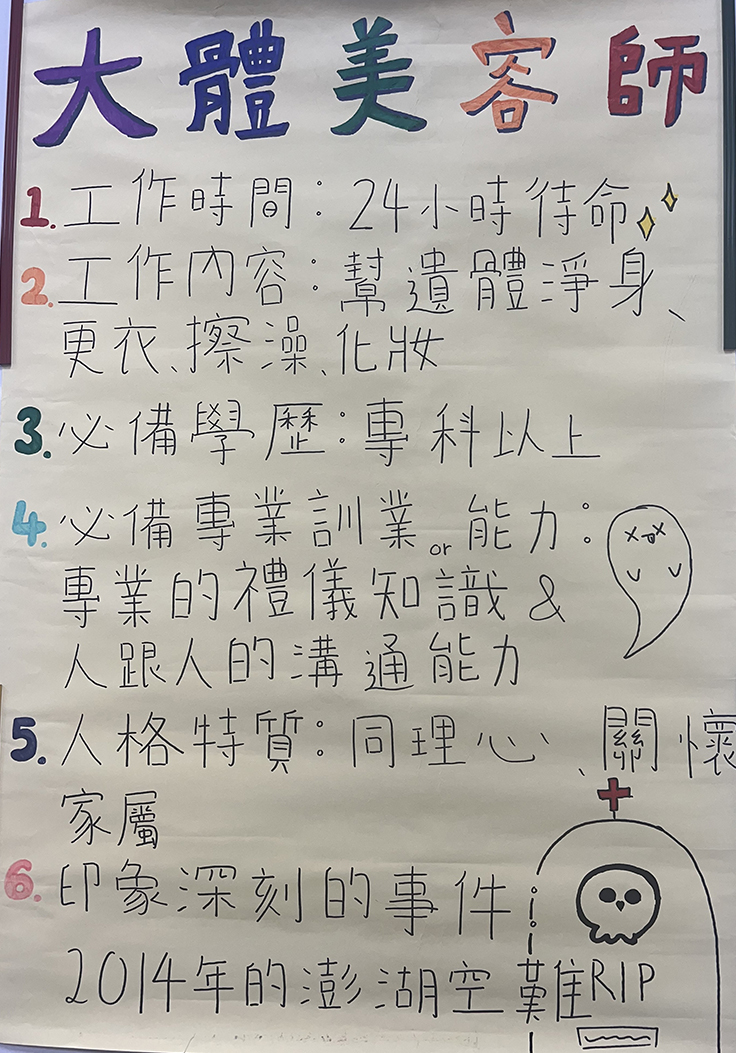 大體美容師
1. 工作時間：24小時待命
2. 工作內容：幫遺體淨身、
更衣、擦澡、化妝
3. 必備學歷：專科以上
4. 必備專業訓業or能力：
專業的禮儀知識&
人跟人的溝通能力
5. 人格特質：同理心、關懷
家屬
6. 印象深刻的事件
2014年的澎湖空難
RIP